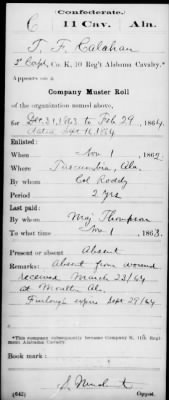 Confederate.
C 11 Cav. Ala.
T. F. Calahan
2' Corp, Co. K, 10 Reg't Alabama Cavalry.*
Appears on a
Company Muster Roll
of the organization named above,
for Dec. 31, 1863, to Feb 29, 1864.
dated Sept. 16, 1864
Enlisted:
When Nov 1, 1862.
Where Tuscumbia, Ala.
By whom Col Roddy
Period 2 Yrs
Last paid:
By whom Maj Thompson
To what time Nov 1, 1863.
Present or absent Absent
Remarks: Absent from wound
received March 23/64
at Moulton Al.
Furlough expires Sept 29/64
*This company subsequently became Company K, 11th Reg't
Alabama Cavalry.
Book mark:
(642) Copyist.